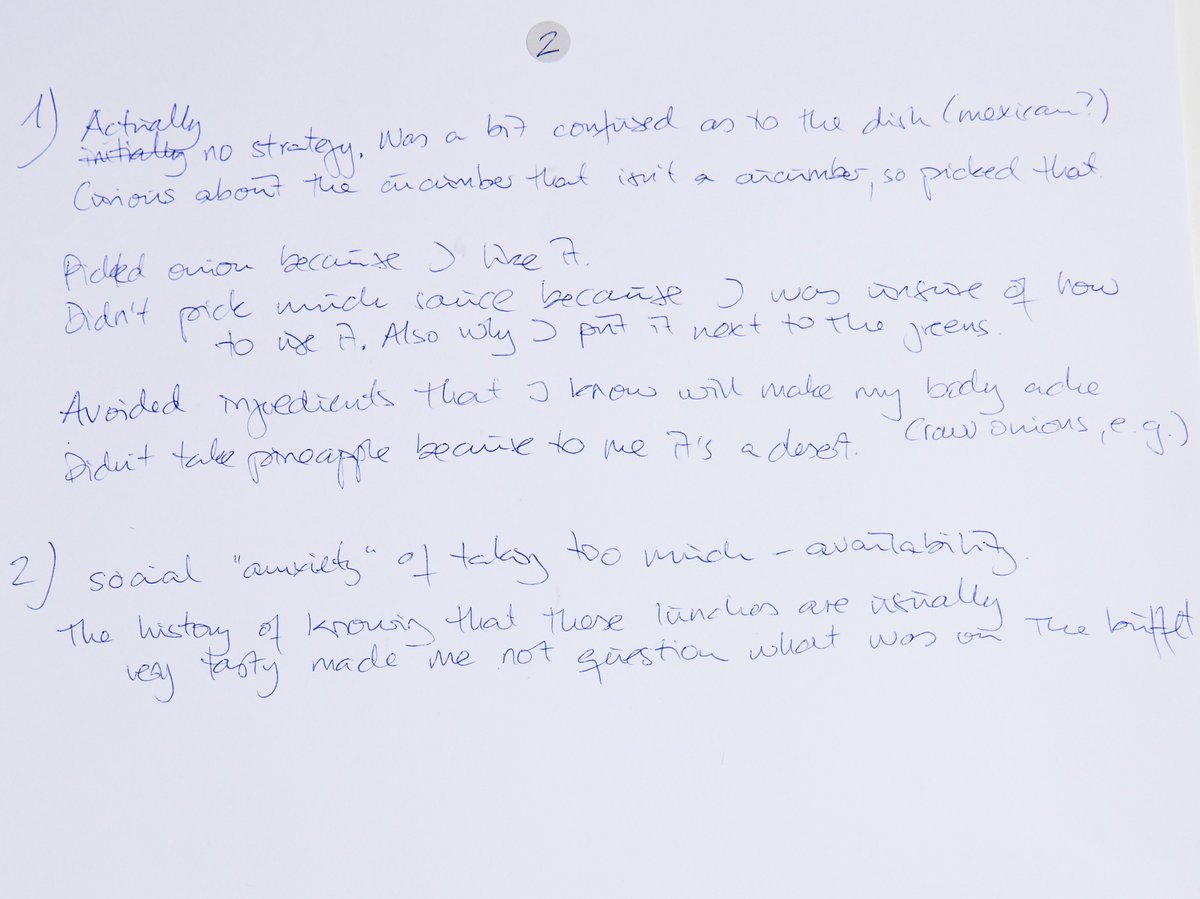 2
1) Actually
initially no strategy. Was a bit confused as to the dish (mexican?)
Curious about the cucumber that isn't a cucumber, so picked that.
Picked onion because I like it.
Didn't pick much sauce because I was unsure of how
to use it. Also why I put it next to the greens.
Avoided ingredients that I know will make my body ache
(raw onions, e.g.)
Didn't take pineapple because to me it's a desert.
2) social "anxiety" of taking too much - availability.
The history of knowing that these lunches are usually
very tasty made me not question what was on the buffet